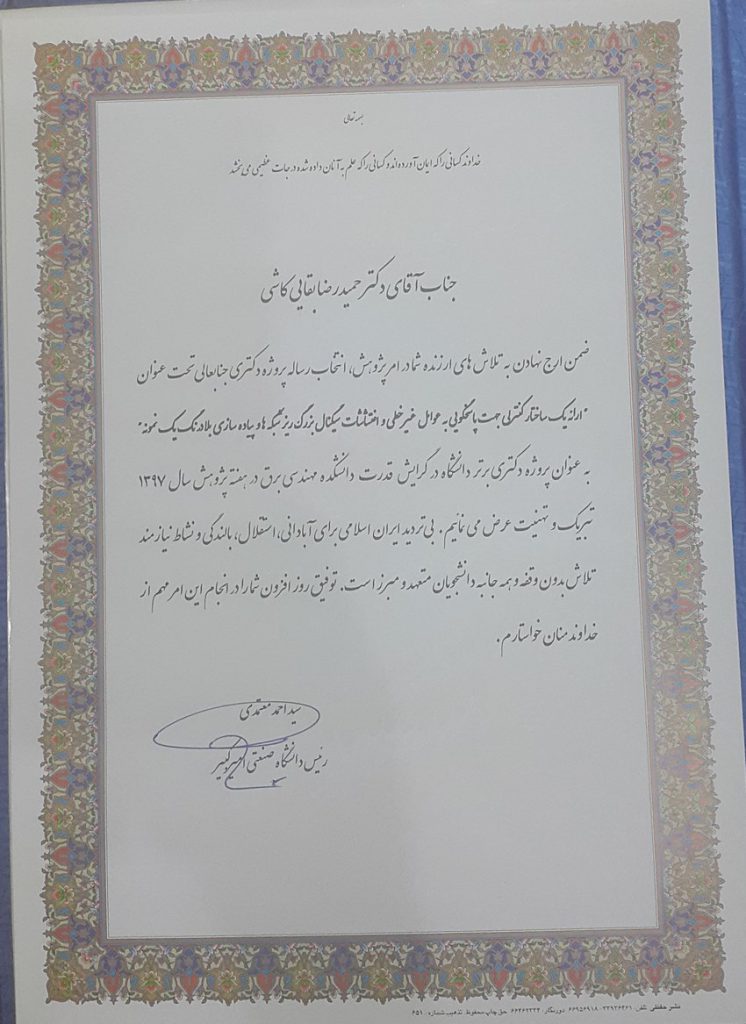 بسمه تعالی
خداوند کسانی را که ایمان آورده‌اند و کسانی را که علم به آنان داده شده درجات عظیمی می بخشد
جناب آقای دکتر حمیدرضا بقایی کاشی
ضمن ارج نهادن به تلاش های ارزنده شما در امر پژوهش، انتخاب رساله پروژه دکتری جنابعالی تحت عنوان
"ارائه یک ساختار کنترلی جهت پاسخگویی به عوامل غیرخطی و اغتشاشات سیگنال بزرگ ریزشبکه ها و پیاده سازی بلادرنگ یک نمونه"
به عنوان پروژه دکتری برتر دانشگاه در گرایش قدرت دانشکده مهندسی برق در هفته پژوهش سال ۱۳۹۷
تبریک و تهنیت عرض می نمائیم. بی تردید ایران اسلامی برای آبادانی، استقلال، بالندگی و نشاط نیازمند
تلاش بدون وقفه و همه جانبه دانشجویان متعهد و مبرز است. توفیق روز افزون شما را در انجام این امر مهم از
خداوند منان خواستارم.
سید احمد معتمدی
رئیس دانشگاه صنعتی امیرکبیر
نشر حفظی تلفن: ۳۳۹۳۶۴۶۱ - ۶۶۹۵۶۹۱۸ دورنگار: ۶۶۴۶۲۳۳۴ حق چاپ محفوظ. تذهیب شماره: ۶۵۱